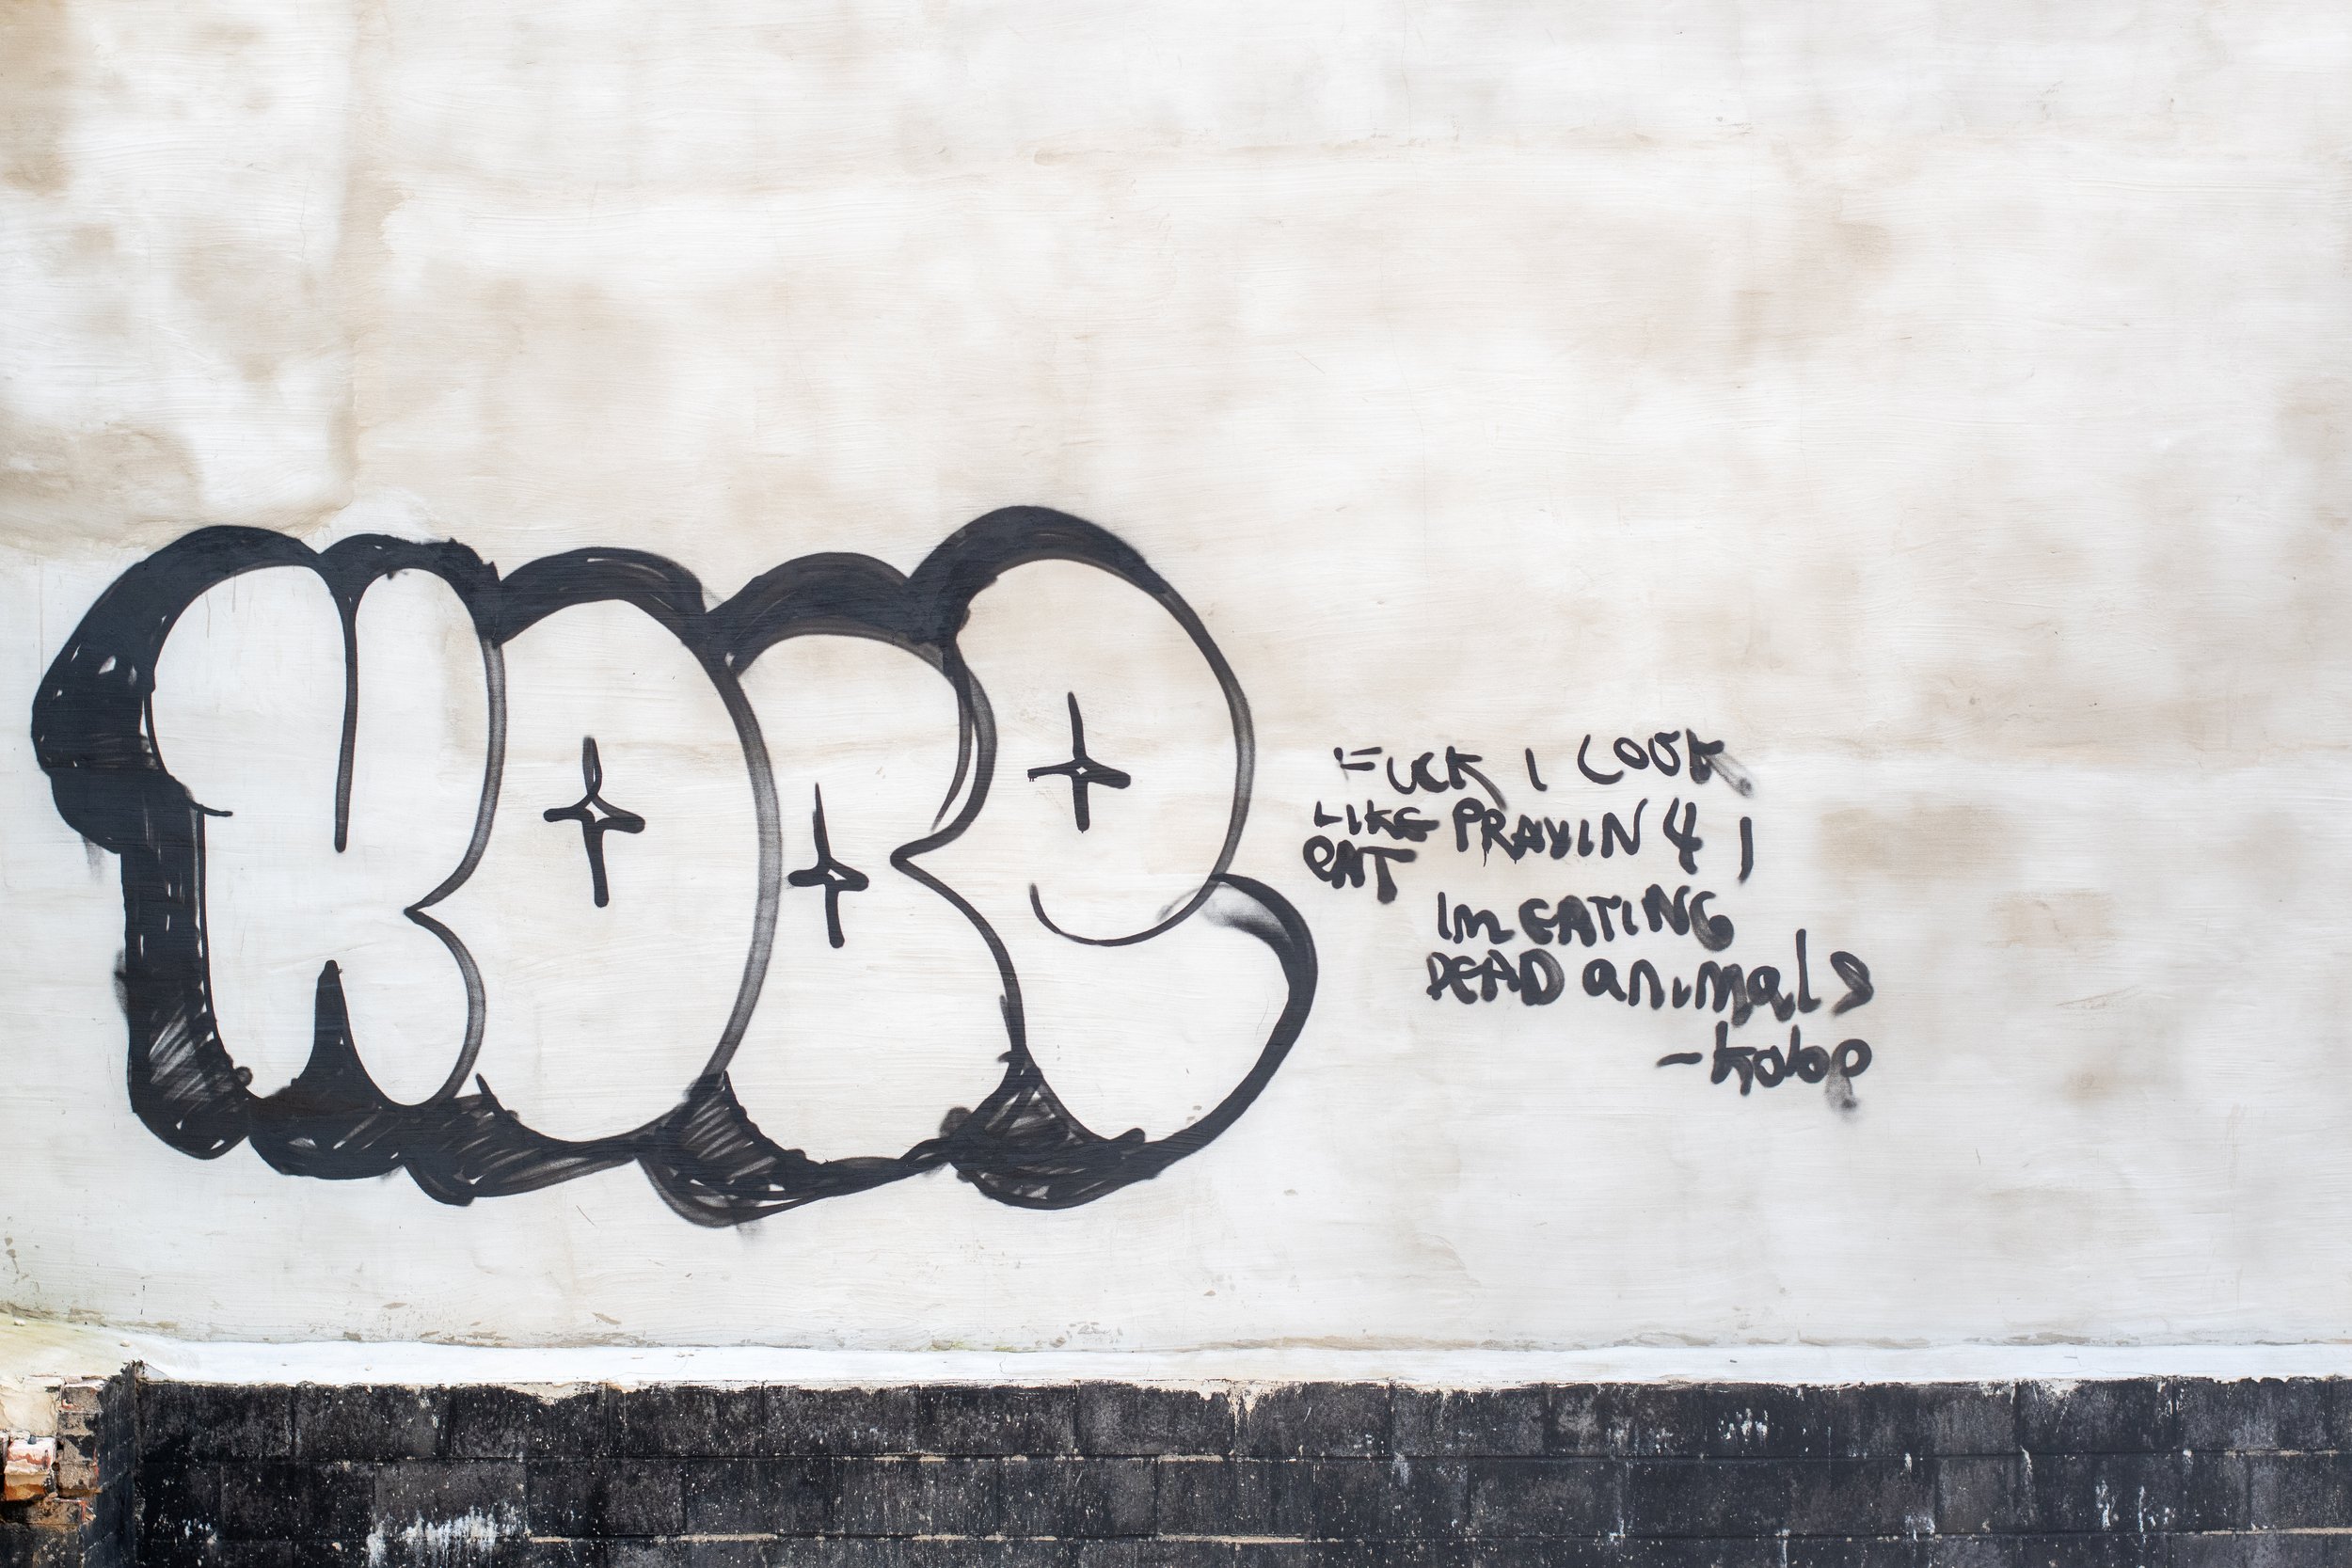 KOBE
FUCK I LOOK
LIKE PRAYIN 4 I
EAT
Im EATING
DEAD animals
-kobe